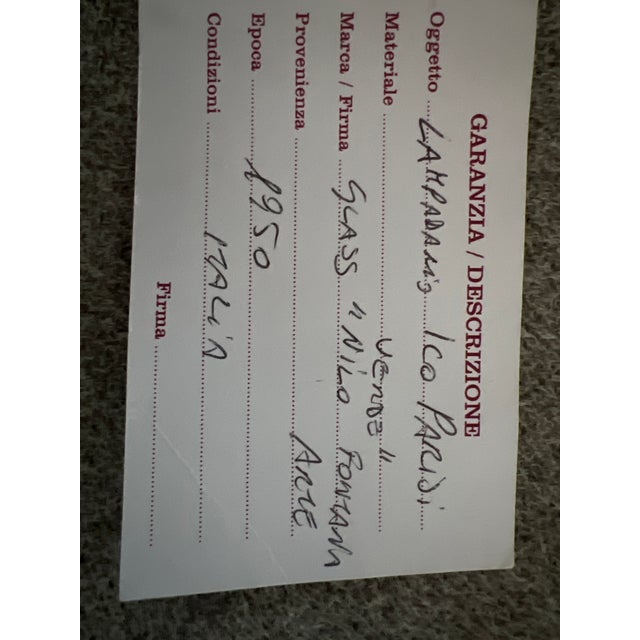 GARANZIA / DESCRIZIONE
Oggetto LAMPADARIO ICO PARISI
Materiale VERDE"
Marca / Firma GLASS "NILO FONTANA
Provenienza ARTE
Epoca 1950
Condizioni ITALIA
Firma